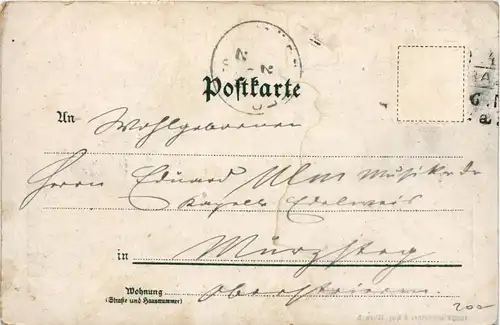 Postkarte
An Wohlgeboren
Herrn Eduard Ulm Musik
Kapelle Edelweis
in Mürzsteg
Wohnung
(Straße und Hausnummer)
Obersteierm.
200